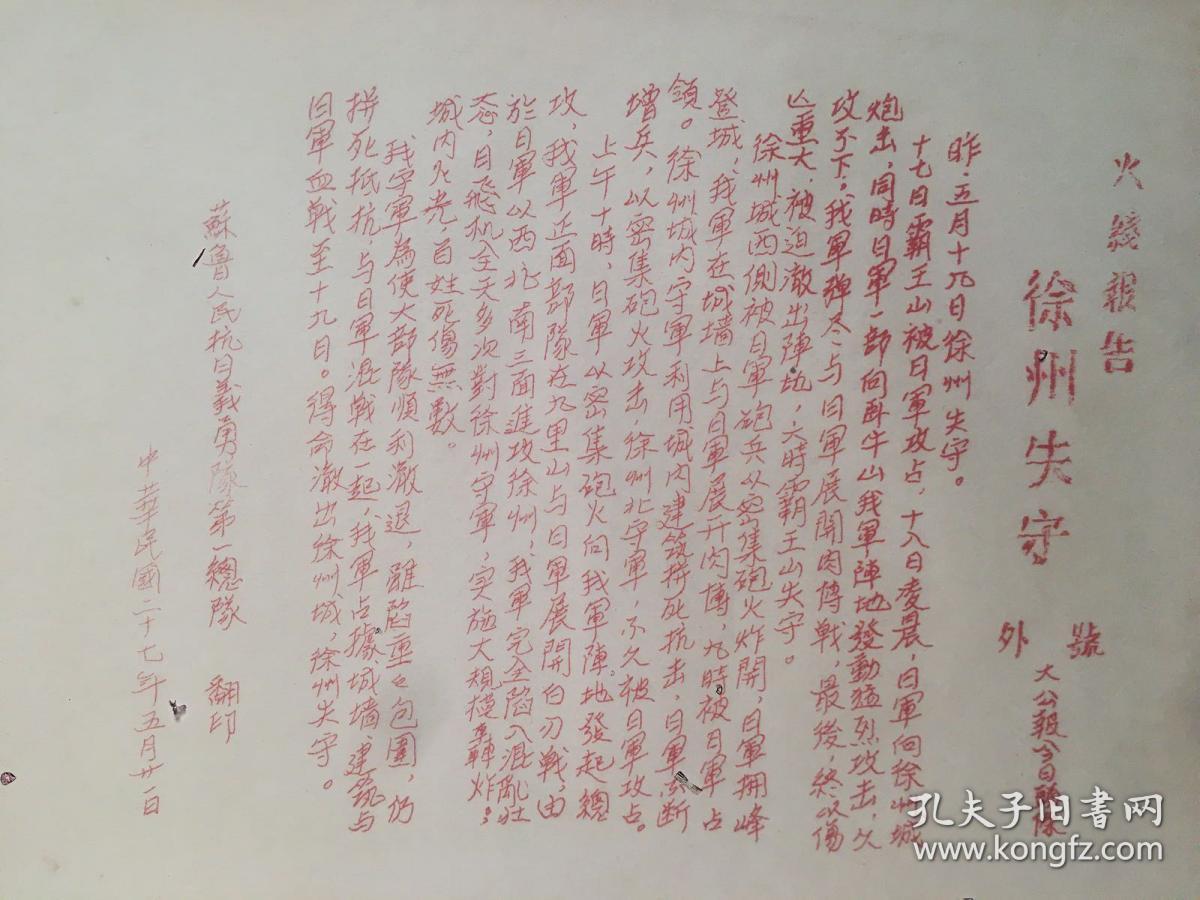 火綫報告
徐州失守
號外
大公報今日
昨,五月十九日徐州失守。
十七日霸王山被日軍攻占,十八日凌晨,日軍向徐州城
炮击,同時日軍一部向卧牛山我軍陣地發動猛烈攻击,久
攻不下,我軍弹尽,与日軍展開肉傅戰,最後,終以傷
亾重大,被迫澈出陣地,六時霸王山失守。
徐州城西側被日軍砲兵以密集砲火炸開,日軍拥峰
登城,我軍在城墙上与日軍展开肉博,九時被日軍占
領。徐州城内守軍利用城内建筑拼死抗击,日軍不断
增兵,以密集砲火攻击,徐州北守軍,不久被日軍攻占。
上午十時,日軍以密集砲火向我軍陣地發起總
攻,我軍正面部隊在九里山与日軍展開白刃戰,由
於日軍以西北、南三面進攻徐州,我軍完全陷入混亂壮
态,日飛机全天多次對徐州守軍,实施大規模轟炸;
城内火光,百姓死傷無數。
我守軍為使大部隊順利澈退,雖陷重々包圍,仍
拼死抵抗,与日軍混戰在一起,我軍占據城墻、建筑与
日軍血戰至十九日。得命澈出徐州城,徐州失守。
蘇魯人民抗日義勇隊第一總隊 翻印
中華民國二十七年五月廿一日
孔夫子旧书网
www.kongfz.com